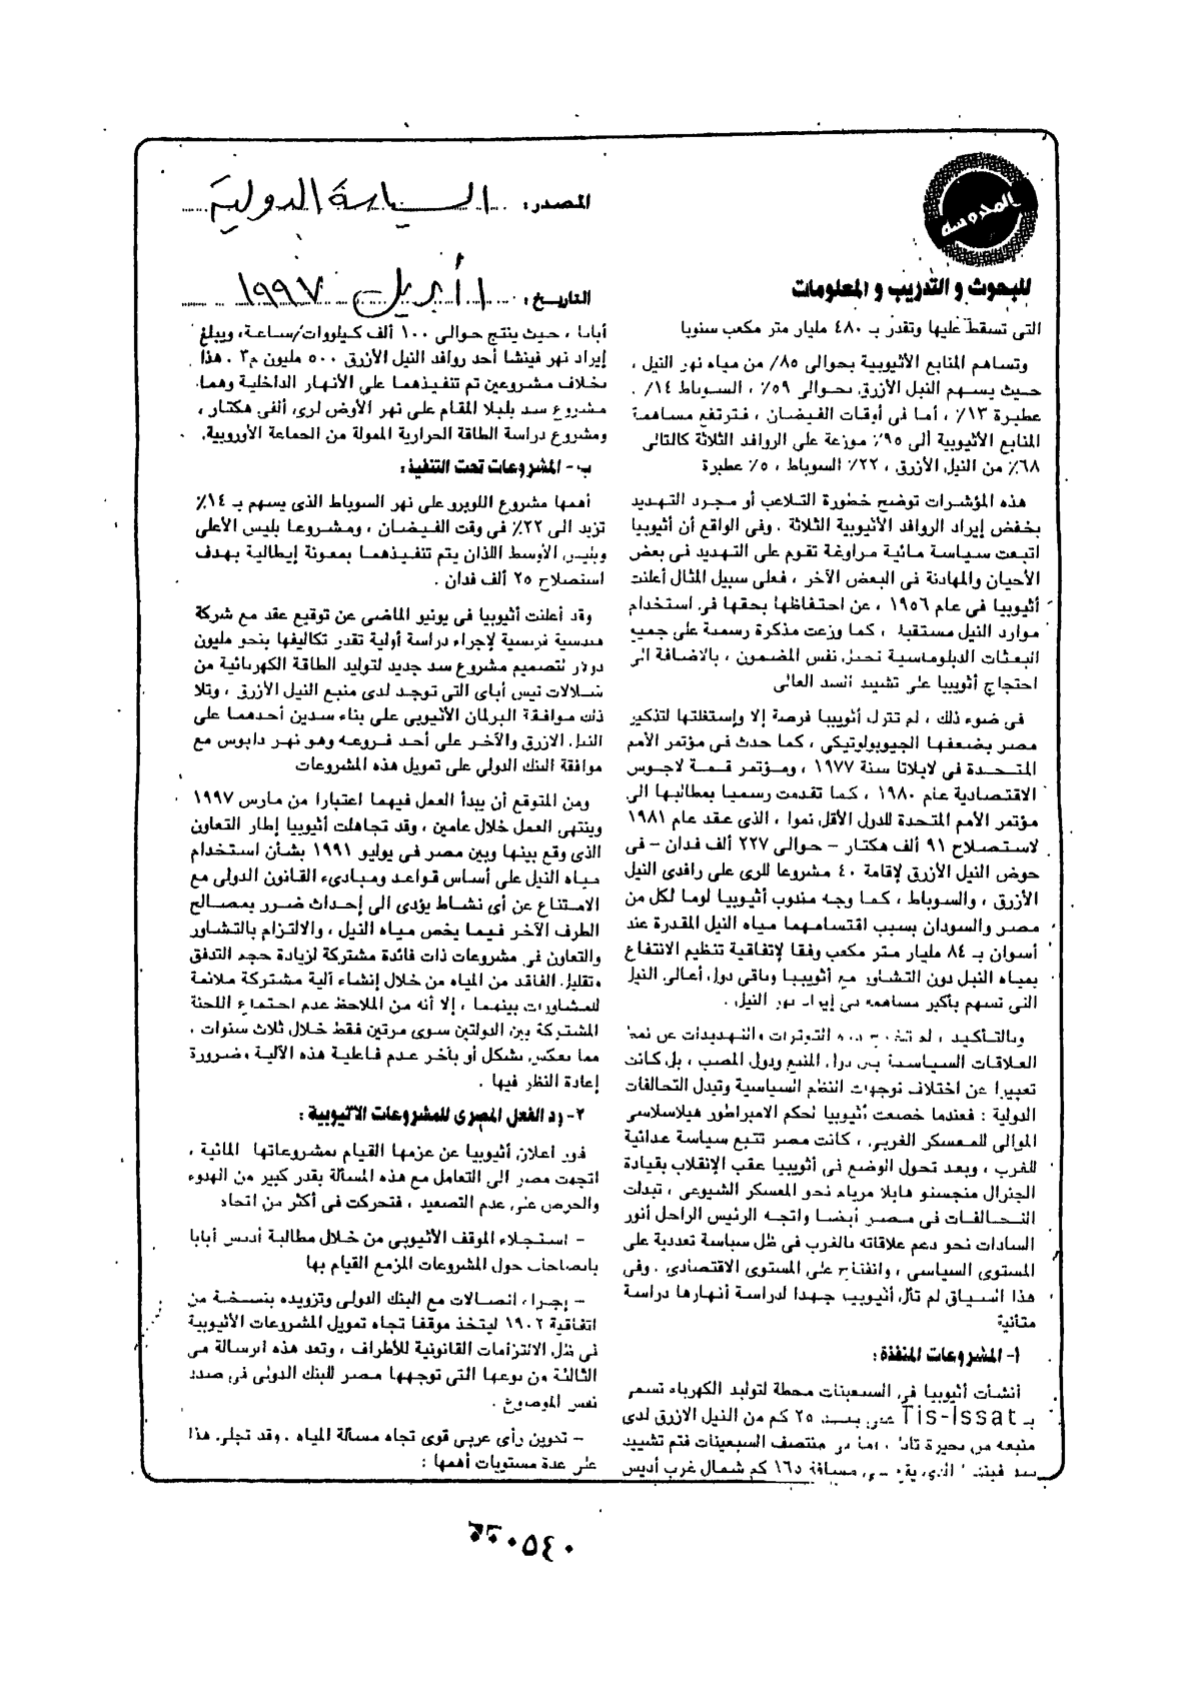 المحروسة
للبحوث و التدريب و المعلومات
المصدر: السياسة الدولية
التاريخ: ١ أبريل ١٩٩٧
التى تسقط عليها وتقدر بـ ٤٨٠ مليار متر مكعب سنويا
وتساهم المنابع الأثيوبية بحوالى ٨٥٪ من مياه نهر النيل ،
حيث يسهم النيل الأزرق بحوالى ٥٩٪ ، السوباط ١٤٪ .
عطبرة ١٣٪ ، أما فى أوقات الفيضان ، فترتفع مساهمة
المنابع الأثيوبية ألى ٩٥٪ موزعة على الروافد الثلاثة كالتالى
٦٨٪ من النيل الأزرق ، ٢٢٪ السوباط ، ٥٪ عطبرة
هذه المؤشرات توضح خطورة التلاعب أو مجرد التهديد
بخفض إيراد الروافد الأثيوبية الثلاثة . وفى الواقع أن أثيوبيا
اتبعت سياسة مائية مراوغة تقوم على التهديد فى بعض
الأحيان والمهادنة فى البعض الآخر ، فعلى سبيل المثال أعلنت
أثيوبيا فى عام ١٩٥٦ ، عن احتفاظها بحقها فى استخدام
موارد النيل مستقبلا ، كما وزعت مذكرة رسمية على جميع
البعثات الدبلوماسية تحمل نفس المضمون ، بالاضافة الى
احتجاج أثيوبيا على تشييد السد العالى
فى ضوء ذلك ، لم تترك أثيوبيا فرصة إلا وإستغلتها لتذكير
مصر بضعفها الجيوبولوتيكى ، كما حدث فى مؤتمر الأمم
المتحدة فى لابلاتا سنة ١٩٧٧ ، ومؤتمر قمة لاجوس
الاقتصادية عام ١٩٨٠ ، كما تقدمت رسميا بمطالبها الى
مؤتمر الأمم المتحدة للدول الأقل نموا ، الذى عقد عام ١٩٨١
لاستصلاح ٩١ ألف هكتار - حوالى ٢٢٧ ألف فدان - فى
حوض النيل الأزرق لإقامة ٤٠ مشروعا للرى على رافدى النيل
الأزرق ، والسوباط ، كما وجه مندوب أثيوبيا لوما لكل من
مصر والسودان بسبب اقتسامهما مياه النيل المقدرة عند
أسوان بـ ٨٤ مليار متر مكعب وفقا لإتفاقية تنظيم الانتفاع
بمياه النيل دون التشاور مع أثيوبيا وباقى دول أعالى النيل
التى تسهم بأكبر مساهمة فى إيراد نهر النيل .
وبالتأكيد ، لم هذه التوترات والتهديدات عن نمط
العلاقات السياسية بين دول المنبع ودول المصب ، بل كانت
تعبيرا عن اختلاف توجهات النظم السياسية وتبدل التحالفات
الدولية : فعندما خضعت أثيوبيا لحكم الامبراطور هيلاسلاسى
الموالى للمعسكر الغربى ، كانت مصر تتبع سياسة عدائية
للغرب ، وبعد تحول الوضع فى أثيوبيا عقب الإنقلاب بقيادة
الجنرال منجستو هايلا مريام نحو المعسكر الشيوعى ، تبدلت
التحالفات فى مصر أيضا واتجه الرئيس الراحل أنور
السادات نحو دعم علاقاته بالغرب فى ظل سياسة تعددية على
المستوى السياسى ، وانفتاح على المستوى الاقتصادى . وفى
هذا السياق لم تأل أثيوبيا جهدا لدراسة أنهارها دراسة
متأنية
أ- المشروعات المنفذة :
أنشأت أثيوبيا فى السبعينات محطة لتوليد الكهرباء تسمى
بـ Tis-Issat على بعد ٢٥ كم من النيل الازرق لدى
منبعه من بحيرة تانا ، أما فى منتصف السبعينات فتم تشييد
سد فينشا الذى يقع على مسافة ١٦٥ كم شمال غرب أديس
أبابا ، حيث ينتج حوالى ١٠٠ ألف كيلووات/ساعة، ويبلغ
إيراد نهر فينشا أحد روافد النيل الأزرق ٥٠٠ مليون م٣ . هذا
بخلاف مشروعين تم تنفيذهما على الأنهار الداخلية وهما،
مشروع سد بلبلا المقام على نهر الأوض لرى ألفى هكتار ،
ومشروع دراسة الطاقة الحرارية الممولة من الجماعة الأوروبية.
ب- المشروعات تحت التنفيذ :
أهمها مشروع اللوبرو على نهر السوباط الذى يسهم بـ ١٤٪
تزيد الى ٢٢٪ فى وقت الفيضان ، ومشروعا بليس الأعلى
وبليس الأوسط اللذان يتم تنفيذهما بمعونة إيطالية بهدف
استصلاح ٢٥ ألف فدان .
وقد أعلنت أثيوبيا فى يونيو الماضى عن توقيع عقد مع شركة
هندسية فرنسية لإجراء دراسة أولية تقدر تكاليفها بنحو مليون
دولار لتصميم مشروع سد جديد لتوليد الطاقة الكهربائية من
شلالات تيس أباى التى توجد لدى منبع النيل الأزرق ، وتلا
ذلك موافقة البرلمان الأثيوبى على بناء سدين أحدهما على
النيل الازرق والآخر على أحد فروعه وهو نهر دابوس مع
موافقة البنك الدولى على تمويل هذه المشروعات
ومن المتوقع أن يبدأ العمل فيهما اعتبارا من مارس ١٩٩٧
وينتهى العمل خلال عامين ، وقد تجاهلت أثيوبيا إطار التعاون
الذى وقع بينها وبين مصر فى يوليو ١٩٩١ بشأن استخدام
مياه النيل على أساس قواعد ومبادىء القانون الدولى مع
الامتناع عن أى نشاط يؤدى الى إحداث ضرر بمصالح
الطرف الآخر فيما يخص مياه النيل ، والالتزام بالتشاور
والتعاون فى مشروعات ذات فائدة مشتركة لزيادة حجم التدفق
وتقليل الفاقد من المياه من خلال إنشاء آلية مشتركة ملائمة
للمشاورات بينهما ، إلا أنه من الملاحظ عدم اجتماع اللجنة
المشتركة بين الدولتين سوى مرتين فقط خلال ثلاث سنوات ،
مما يعكس بشكل أو بآخر عدم فاعلية هذه الآلية وضرورة
إعادة النظر فيها .
٢- رد الفعل المصرى للمشروعات الاثيوبية :
فور اعلان أثيوبيا عن عزمها القيام بمشروعاتها المائية ،
اتجهت مصر الى التعامل مع هذه المسألة بقدر كبير من الهدوء
والحرص على عدم التصعيد ، فتحركت فى أكثر من اتجاه
- استجلاء الموقف الأثيوبى من خلال مطالبة أديس أبابا
بايضاحات حول المشروعات المزمع القيام بها
- إجراء اتصالات مع البنك الدولى وتزويده بنسخة من
اتفاقية ١٩٠٢ ليتخذ موقفا تجاه تمويل المشروعات الأثيوبية
فى ظل الالتزامات القانونية للأطراف ، وتعد هذه الرسالة هى
الثالثة من نوعها التى توجهها مصر للبنك الدولى فى صدد
نفس الموضوع .
- تكوين رأى عربى قوى تجاه مسألة المياه . وقد تجلى هذا
على عدة مستويات أهمها :
٠٥٤٠